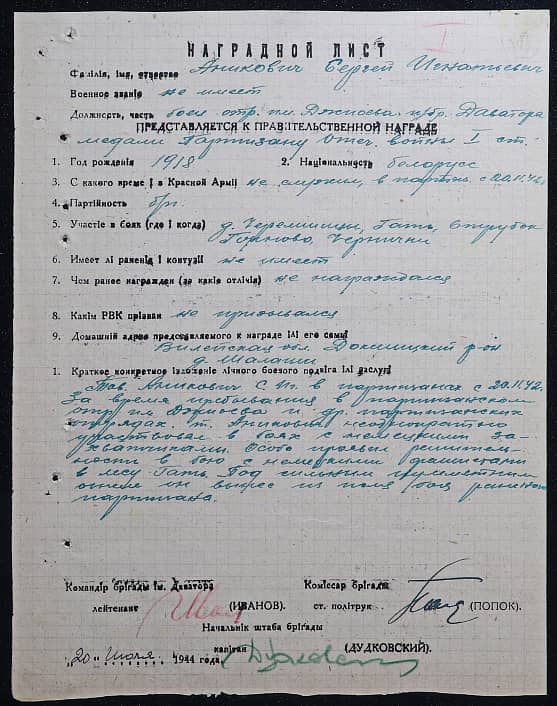 НАГРАДНОЙ ЛИСТ
Фаміліа, імя, отчество Аникович Сергей Игнатьевич
Военное званіе не имеет
Должность, часть боец отр. им. Джиоева п/бр. Даватора
ПРЕДСТАВЛЯЕТСЯ К ПРАВІТЕЛЬСТВЕННОЙ НАГРАДЕ
медали Партизану Отеч. войны I ст.
1. Год рожденія 1918 2. Національность белорусс
3. С какого времені в Красной Арміі не служил, в партиз. с 20.11.42г.
4. Партійность б/п.
5. Участіе в боях (где і когда) д. Черемшицы, Гать,
Чернички
6. Имеет лі раненія і контузіі не имеет
7. Чем ранее награжден (за какіе отлічія) не награждался
8. Какім РВК прізван не призывался
9. Домашній адрес представляемого к награде ілі его семьі
Вилейская обл. Докшицкий р-он
д. Шалаши
1. Краткое конкретное ізложеніе лічного боевого подвіга ілі заслугі
Тов. Аникович С. И. в партизанах с 20.11.42.
За время пребывания в партизанском
отр. им. Джиоева и др. партизанских
отрядах. т. Аникович неоднократно
участвовал в боях с немецкими за-
хватчиками. Особо проявил решитель-
ность в бою с немецкими фашистами
в лесу Гать. Под сильным пулеметным
огнем он вынес из поля боя раненого
партизана.
Командір брігады ім. Даватора Коміссар брігады
лейтенант (ИВАНОВ). ст. політрук (ПОПОК).
Начальнік штаба брігады
капітан (ДУДКОВСКИЙ).
„20" июля 1944 года.